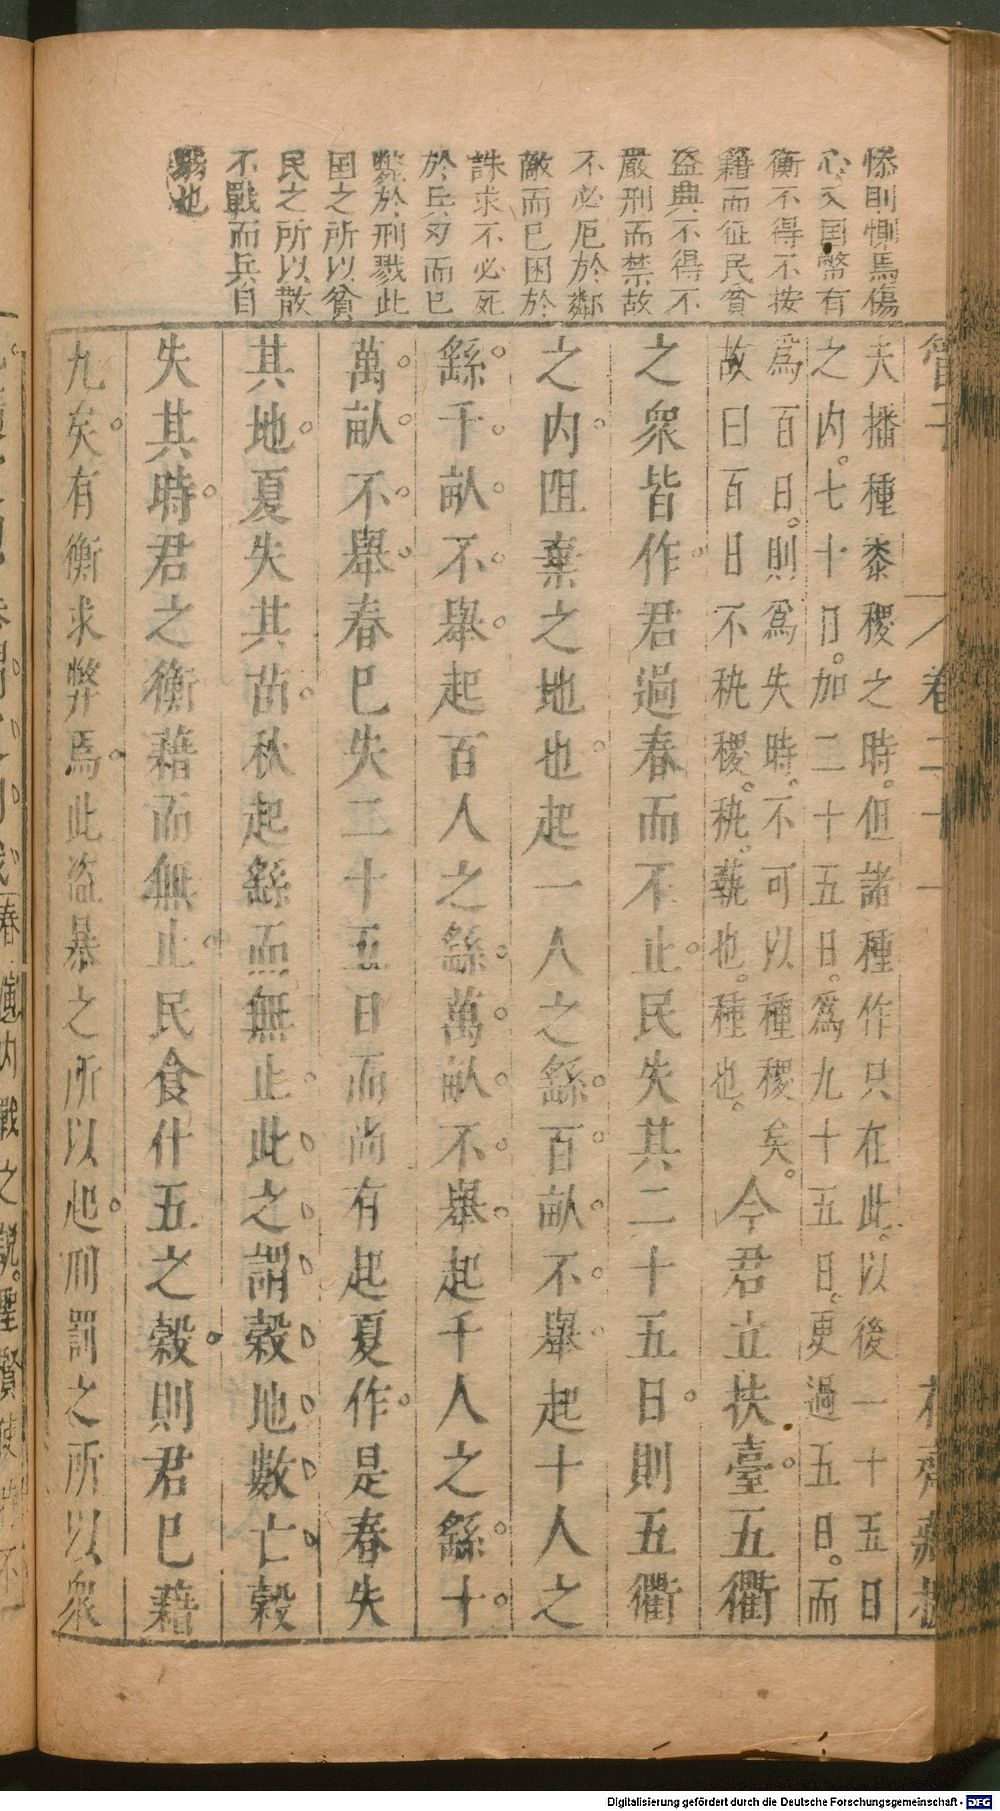 慘則惻焉傷
心入国幣有
衡不得不按
籍而征民貧
盜興不得不
嚴刑而禁故
不必厄於鄰
敵而已困於
誅求不必死
於兵刃而已
斃於刑戮此
国之所以貧
民之所以散
不戰而兵自
也
管子
卷二十一
夫播種黍稷之時。但諸種作只在此。以後一十五日
之內。七十日。加二十五日。爲九十五日。更過五日。而
爲百日。則爲失時。不可以種稷矣。
故曰百日不秇稷。秇。蓺也。種也。
今君立扶臺。五衢
之衆皆作。君過春而不止。民失其二十五日。則五衢
之內。阻棄之地也。起一人之繇。百畝不舉。起十人之
繇。千畝不舉。起百人之繇。萬畝不舉。起千人之繇。十
萬畝不舉。春已失二十五日而尚有起夏作。是春失
其地。夏失其苗。秋起繇而無止。此之謂穀地數亡。穀
失其時。君之衡藉而無止。民食什五之穀。則君已藉
九矣。有衡求弊焉。此盜暴之所以起。刑罰之所以衆
春
內戰之說。聖賢
Digitalisierung gefördert durch die Deutsche Forschungsgemeinschaft - DFG